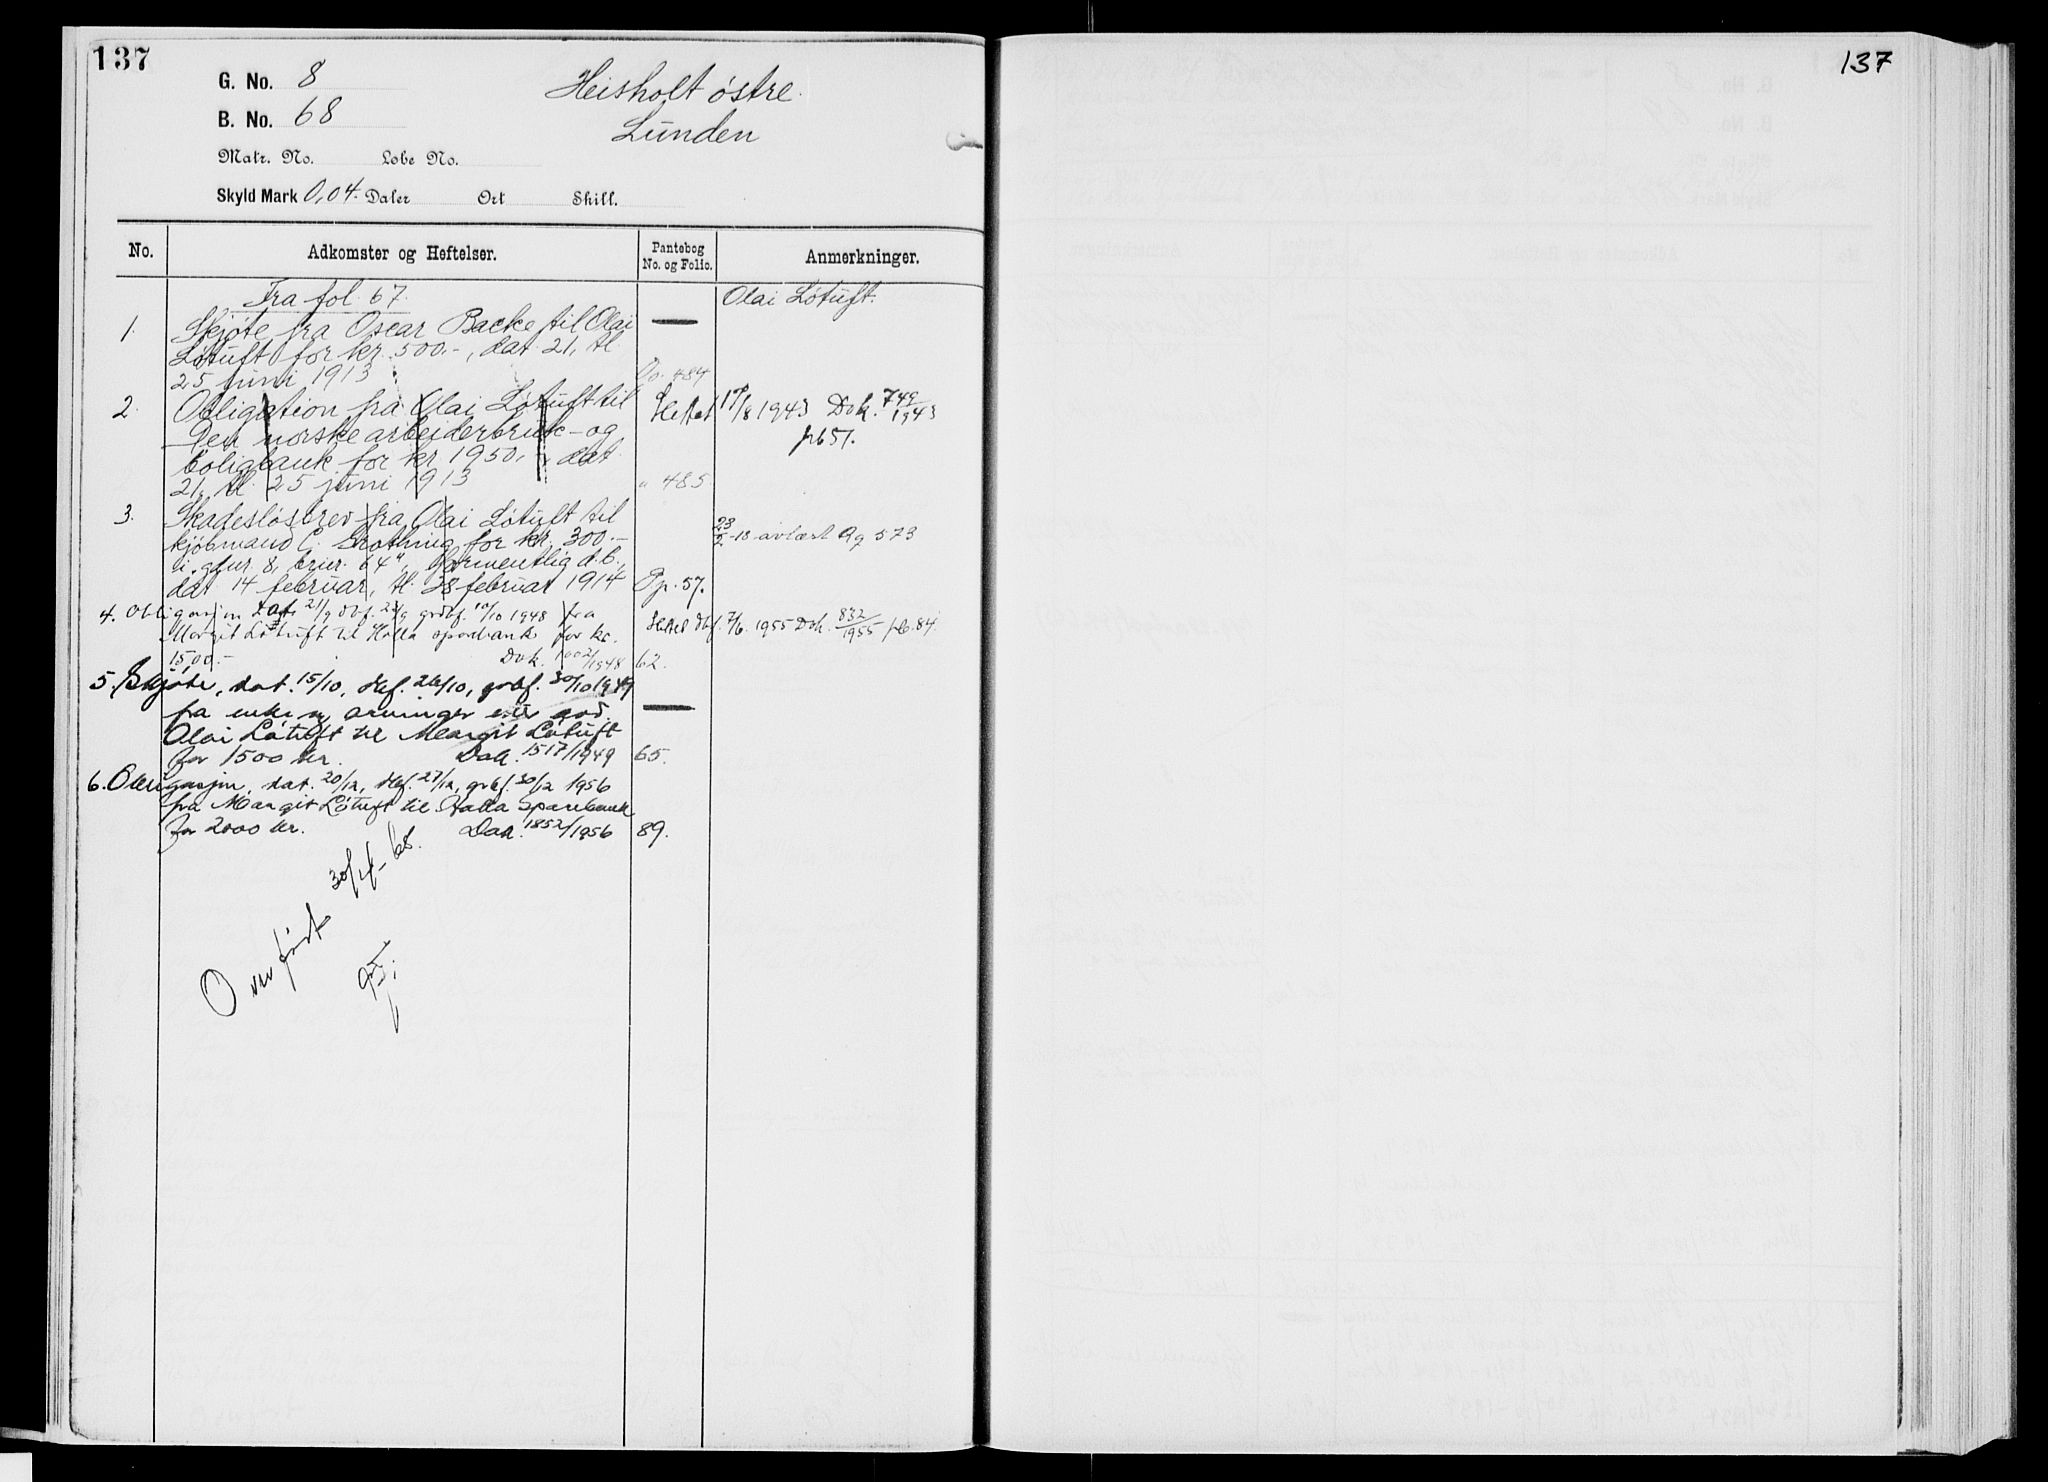 137
137
G. No. 8
B. No. 68
Heisholt østre.
Lunden
Matr. No. Løbe No.
Skyld Mark 0,04. Daler Ort Skill.
No. Adkomster og Heftelser. Pantebog No. og Folio. Anmerkninger.
Fra fol. 67. Olai Løtuft.
1. Skjøte fra Oscar Backe til Olai —
Løtuft for kr. 500.-, dat. 21, tl.
25 juni 1913 Oo. 484
2. Obligation fra Olai Løtuft til Slettet 17/8 1943 Dok. 749/1943
Den norske arbeiderbruk- og pb 51.
boligbank for kr 1950.- dat.
21, tl. 25 juni 1913 " 485
3. Skadesløsbrev fra Olai Løtuft til
kjøbmand C. for kr. 300.- 23/2-18 avlæst Qq 573
i gnr. 8, brnr. 64", formentlig d. b.,
dat 14 februar, tl. 28 februar 1914 Pp. 57.
4. Obligasjon dat. 21/9 dbf. 23/9 grbf. 10/10 1948 fra Slettet dbf. 7/6. 1955 Dok. 832/1955 pb. 84.
Margit Løtuft til Holla sparebank for kr.
1500.- Dok. 1002/1948 62.
5. Skjøte, dat. 15/10, dbf. 26/10, grbf. 30/10 1949
fra enke og arvinger etter avd. —
Olai Løtuft til Margit Løtuft
for 1500 kr. Dok. 1517/1949 65.
6. Obligasjon, dat. 20/12, dbf. 27/12, grbf. 30/12 1956
fra Margit Løtuft til Holla Sparebank
for 2000 kr. Dok. 1852/1956 89.
Overført 30/4-68.